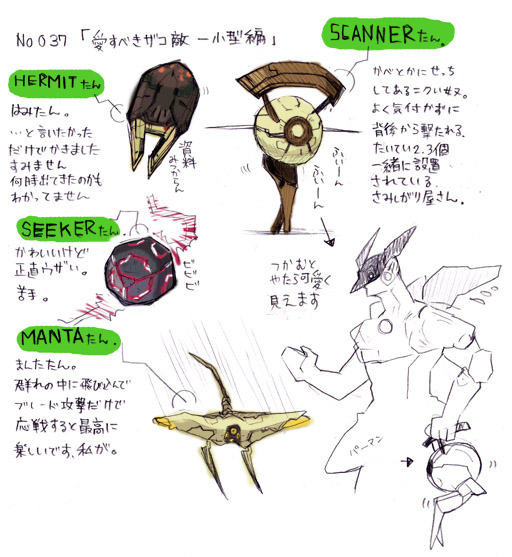 No 037 「愛すべきザコ敵 ー小型編」
HERMITたん
はみたん。
…と言いたかった
だけでかきました
すみません
何時出てきたのかも
わかってません
資料
みつからん
SCANNERたん。
かべとかにせっち
してあるニクい奴。
よく気付かずに
背後から撃たれる。
たいてい2、3個
一緒に設置
されている。
さみしがり屋さん。
ふぃーん
ふぃーん
SEEKERたん。
かわいいけど
正直ウザい。
苦手。
ビビビ
つかむと
やたら可愛く
見えます
MANTAたん。
まんたたん。
群れの中に飛び込んで
ブレード攻撃だけで
応戦すると最高に
楽しいです、私が。
パーマン